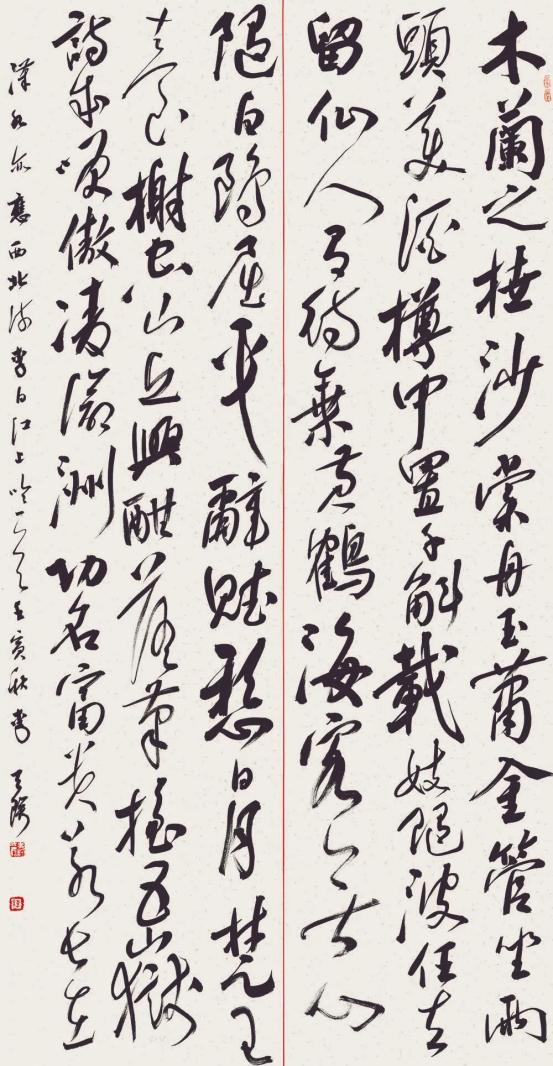 木蘭之枻沙棠舟玉簫金管坐兩
頭美酒樽中置千斛載妓隨波任去
留仙人有待乘黃鶴海客無心
隨白鷗屈平辭賦懸日月楚王
臺榭空山丘興酣落筆搖五嶽
詩成笑傲凌滄洲功名富貴若長在
漢水亦應西北流李白江上吟一首壬寅秋書